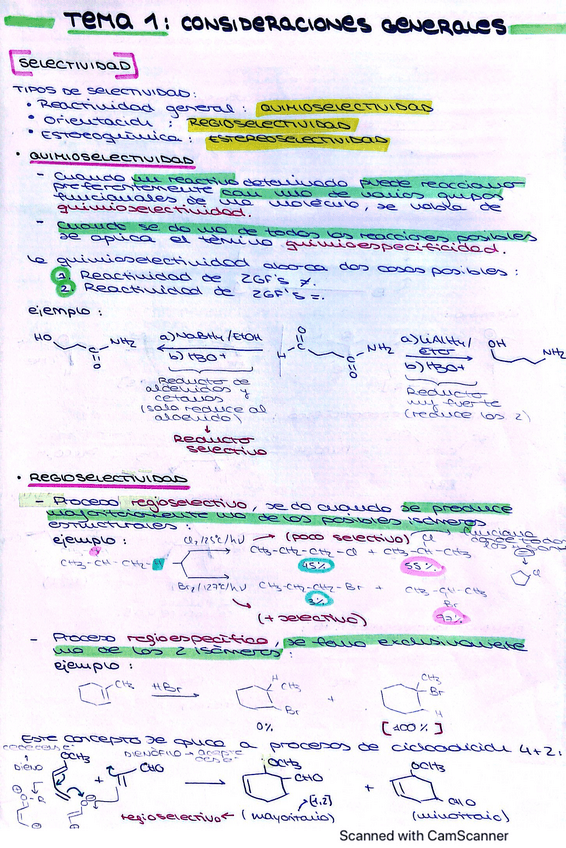 TEMA 1: CONSIDERACIONES GENERALES
SELECTIVIDAD
TIPOS DE SELECTIVIDAD:
• Reactividad general: QUIMIOSELECTIVIDAD
• Orientación: REGIOSELECTIVIDAD
• Estereoquímica: ESTEREOSELECTIVIDAD
• QUIMIOSELECTIVIDAD
- Cuando un reactivo determinado puede reaccionar
preferentemente con uno de varios grupos
funcionales de una molécula, se habla de
quimioselectividad.
- Cuando se da una de todas las reacciones posibles
se aplica el término quimioespecificidad.
La quimioselectividad abarca dos casos posibles:
1. Reactividad de 2GF's ≠.
2. Reactividad de 2GF's =.
ejemplo:
HO NH2 O
a) NaBH4/EtOH
b) H3O+
H C O C NH2 O
a) LiAlH4/
EtO
b) H3O+
OH NH2
Reductor de
aldehídos y
cetonas
(solo reduce al
aldehído)
Reductor
selectivo
Reductor
muy fuerte
(reduce los 2)
• REGIOSELECTIVIDAD
- Proceso regioselectivo, se da cuando se produce
mayoritariamente uno de los posibles isómeros
estructurales:
ejemplo:
Cl2/125°C/hν (poco selectivo)
CH3-CH-CH2-H
CH3-CH2-CH2-Cl + CH3-CH-CH3
Cl
45% 55%
Br2/127°C/hν
CH3-CH2-CH2-Br + CH3-CH-CH3
Br
3% 97%
(+ selectivo)
- Proceso regioespecífico, se forma exclusivamente
uno de los 2 isómeros:
ejemplo:
CH3 HBr H CH3 Br + CH3 Br H
0% [100%]
Este concepto se aplica a procesos de cicloadición 4+2:
DIENO
DIENÓFILO
OCH3 + CHO
OCH3 CHO + OCH3 CHO
(1,2)
regioselectivo ← (mayoritario) (minoritario)
Scanned with CamScanner